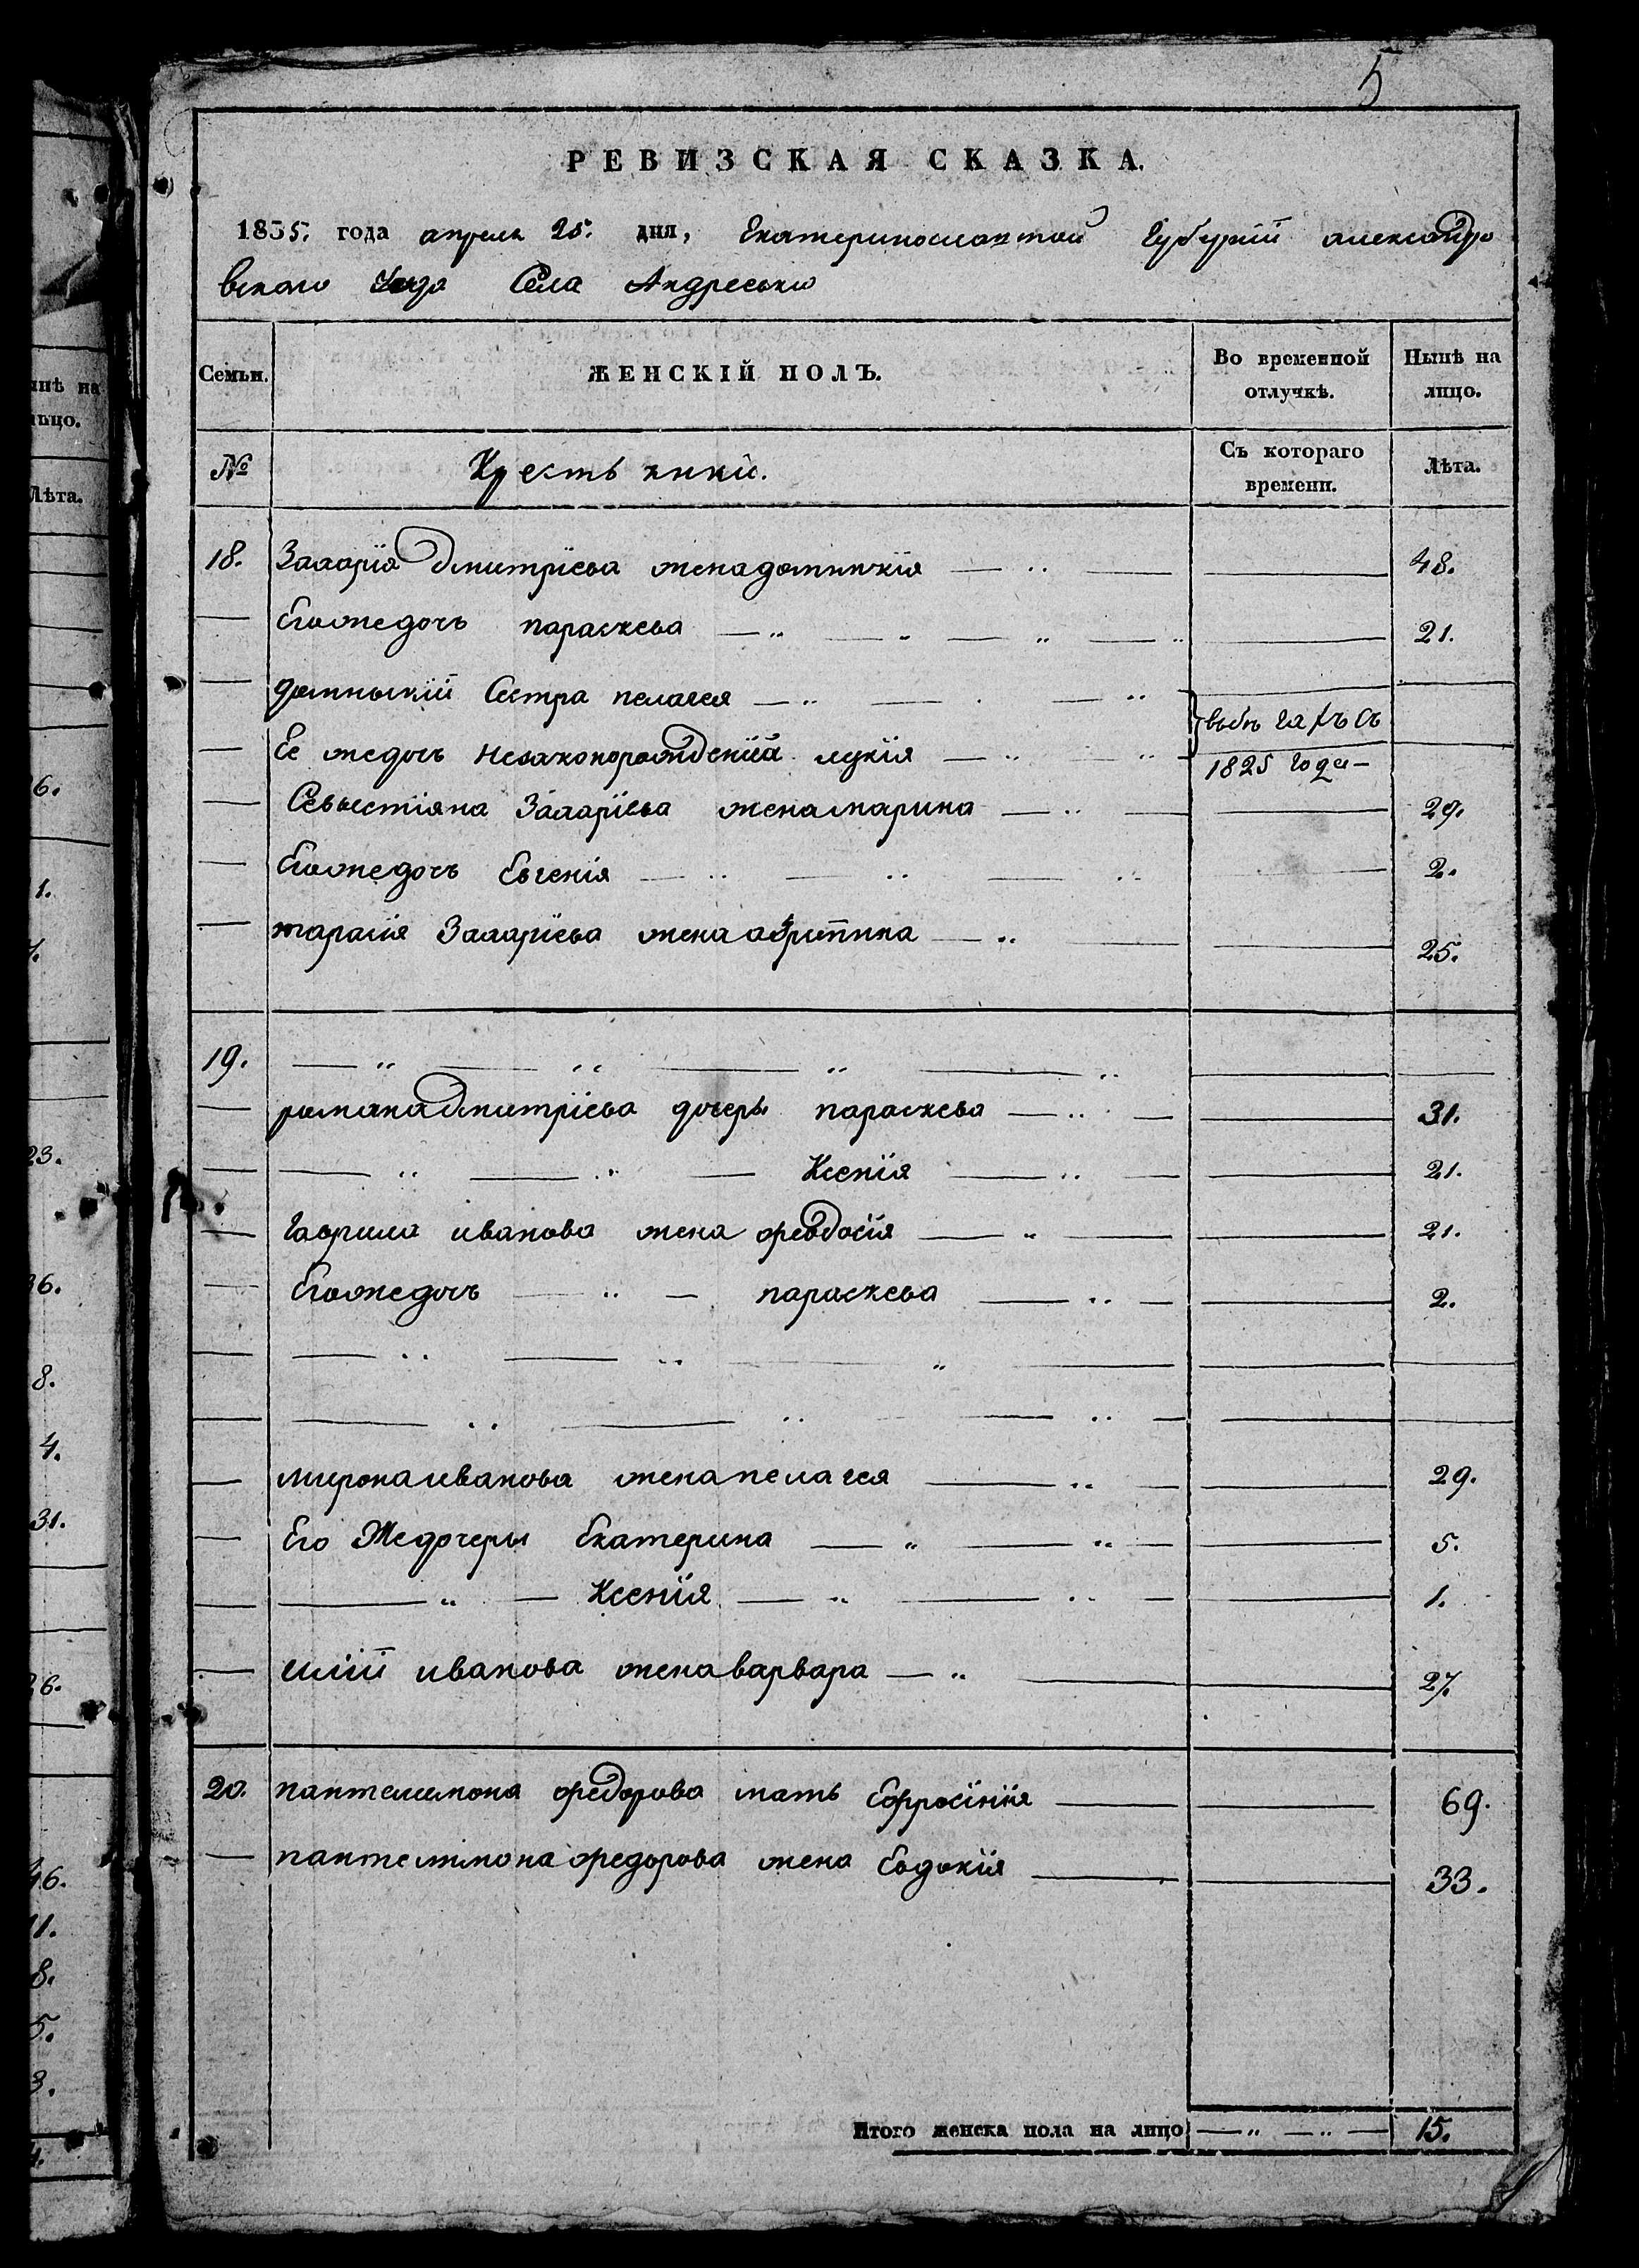 5
РЕВИЗСКАЯ СКАЗКА.
1835. года апреля 25. дня, Екатеринославской Губерніи александро
вскаго Уезда Села Андреевки
Семьи. ЖЕНСКІЙ ПОЛЪ. Во временной отлучкѣ. Нынѣ на лицо.
№ Крестьянки. Съ котораго времени. Лѣта.
18. Захарія дмитріева жена домникія 48.
Егожедочь параскева 21.
Сестра пелагея
Ее жедочь незаконорожденная лукія 1825 года
Севастіяна Захаріева женамарина 29.
Егожедочь Евгенія 2.
тарасія Захаріева жена 25.
19.
романадмитріева дочеры параскева 31.
Ксенія 21.
гаврила иванова жена феодосія 21.
Егожедочь параскева 2.
миронаиванова женапелагея 29.
Его Жедочеры Екатерина 5.
Ксенія 1.
иліи иванова женаварвара 27.
20. пантелимона федорова мать Ефросінія 69.
пантелимонафедорова жена Евдокія 33.
Итого женска пола на лицо 15.
нѣ на
цо.
Лѣта.
6.
1.
23.
36.
8.
4.
31.
26.
46.
11.
8.
5.
3.